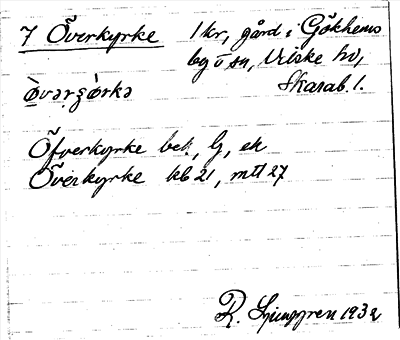 7 Överkyrke 1 kr, gård i Gökhems
by o sn, Vilske hd,
Skarab. l.
Öfverkyrke bet., G, ek
Överkyrke kb 21, mtl 27
R. Ljunggren 1932